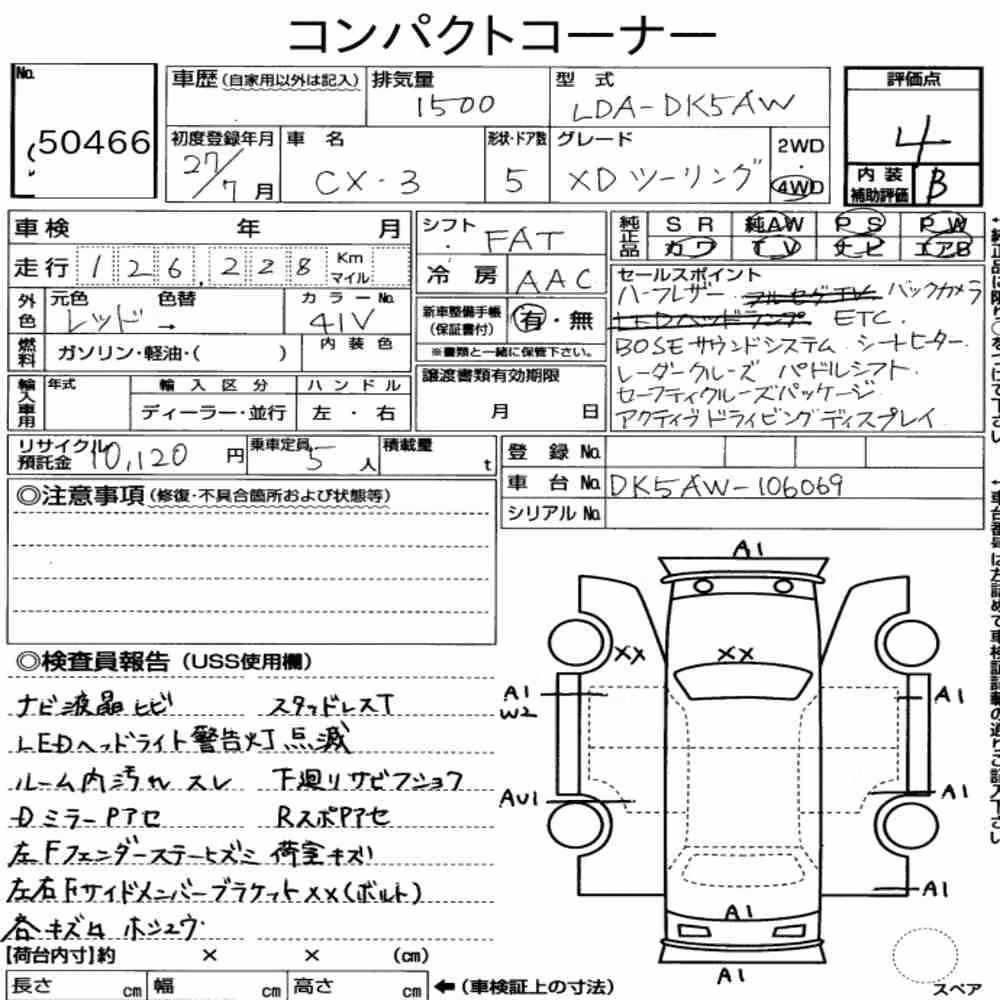 コンパクトコーナー
No. 50466
車歴 (自家用以外は記入)
排気量 1500
型式 LDA-DK5AW
評価点 4
初度登録年月 27/7月
車名 CX-3
形状・ドア数 5
グレード XDツーリング
2WD・4WD
内装補助評価 B
車検 年 月
走行 126,228 Km マイル
シフト FAT
冷房 AAC
純正品 SR 純AW PS PW
カワ TV ナビ エアB
外色 元色 レッド → 色替
カラーNo. 41V
燃料 ガソリン・軽油・( )
内装色
新車整備手帳(保証書付) 有・無
※書類と一緒に保管下さい。
セールスポイント
ハーフレザー フルセグTV バックカメラ
LEDヘッドランプ ETC.
BOSEサウンドシステム シートヒーター.
レーダークルーズ パドルシフト.
セーフティクルーズパッケージ
アクティブドライビングディスプレイ
輸入車用 年式 輸入区分 ハンドル
ディーラー・並行 左・右
譲渡書類有効期限
月 日
リサイクル預託金 10,120円
乗車定員 5人
積載量 t
登録No.
車台No. DK5AW-106069
シリアルNo.
◎注意事項 (修復・不具合箇所および状態等)
◎検査員報告 (USS使用欄)
ナビ液晶ヒビ スタッドレスT
LEDヘッドライト警告灯点滅
ルーム内汚れ スレ 下廻りサビフショク
DミラーPアセ RスポPアセ
左Fフェンダーステーヒズミ 荷室キズ
左右Fサイドメンバーブラケットxx(ボルト)
各キズ ホシュウ
【荷台内寸】約 × × (cm)
長さ cm 幅 cm 高さ cm ←(車検証上の寸法)
A1
XX XX
A1 W2 A1
AU1 A1
A1
A1
A1
スペア